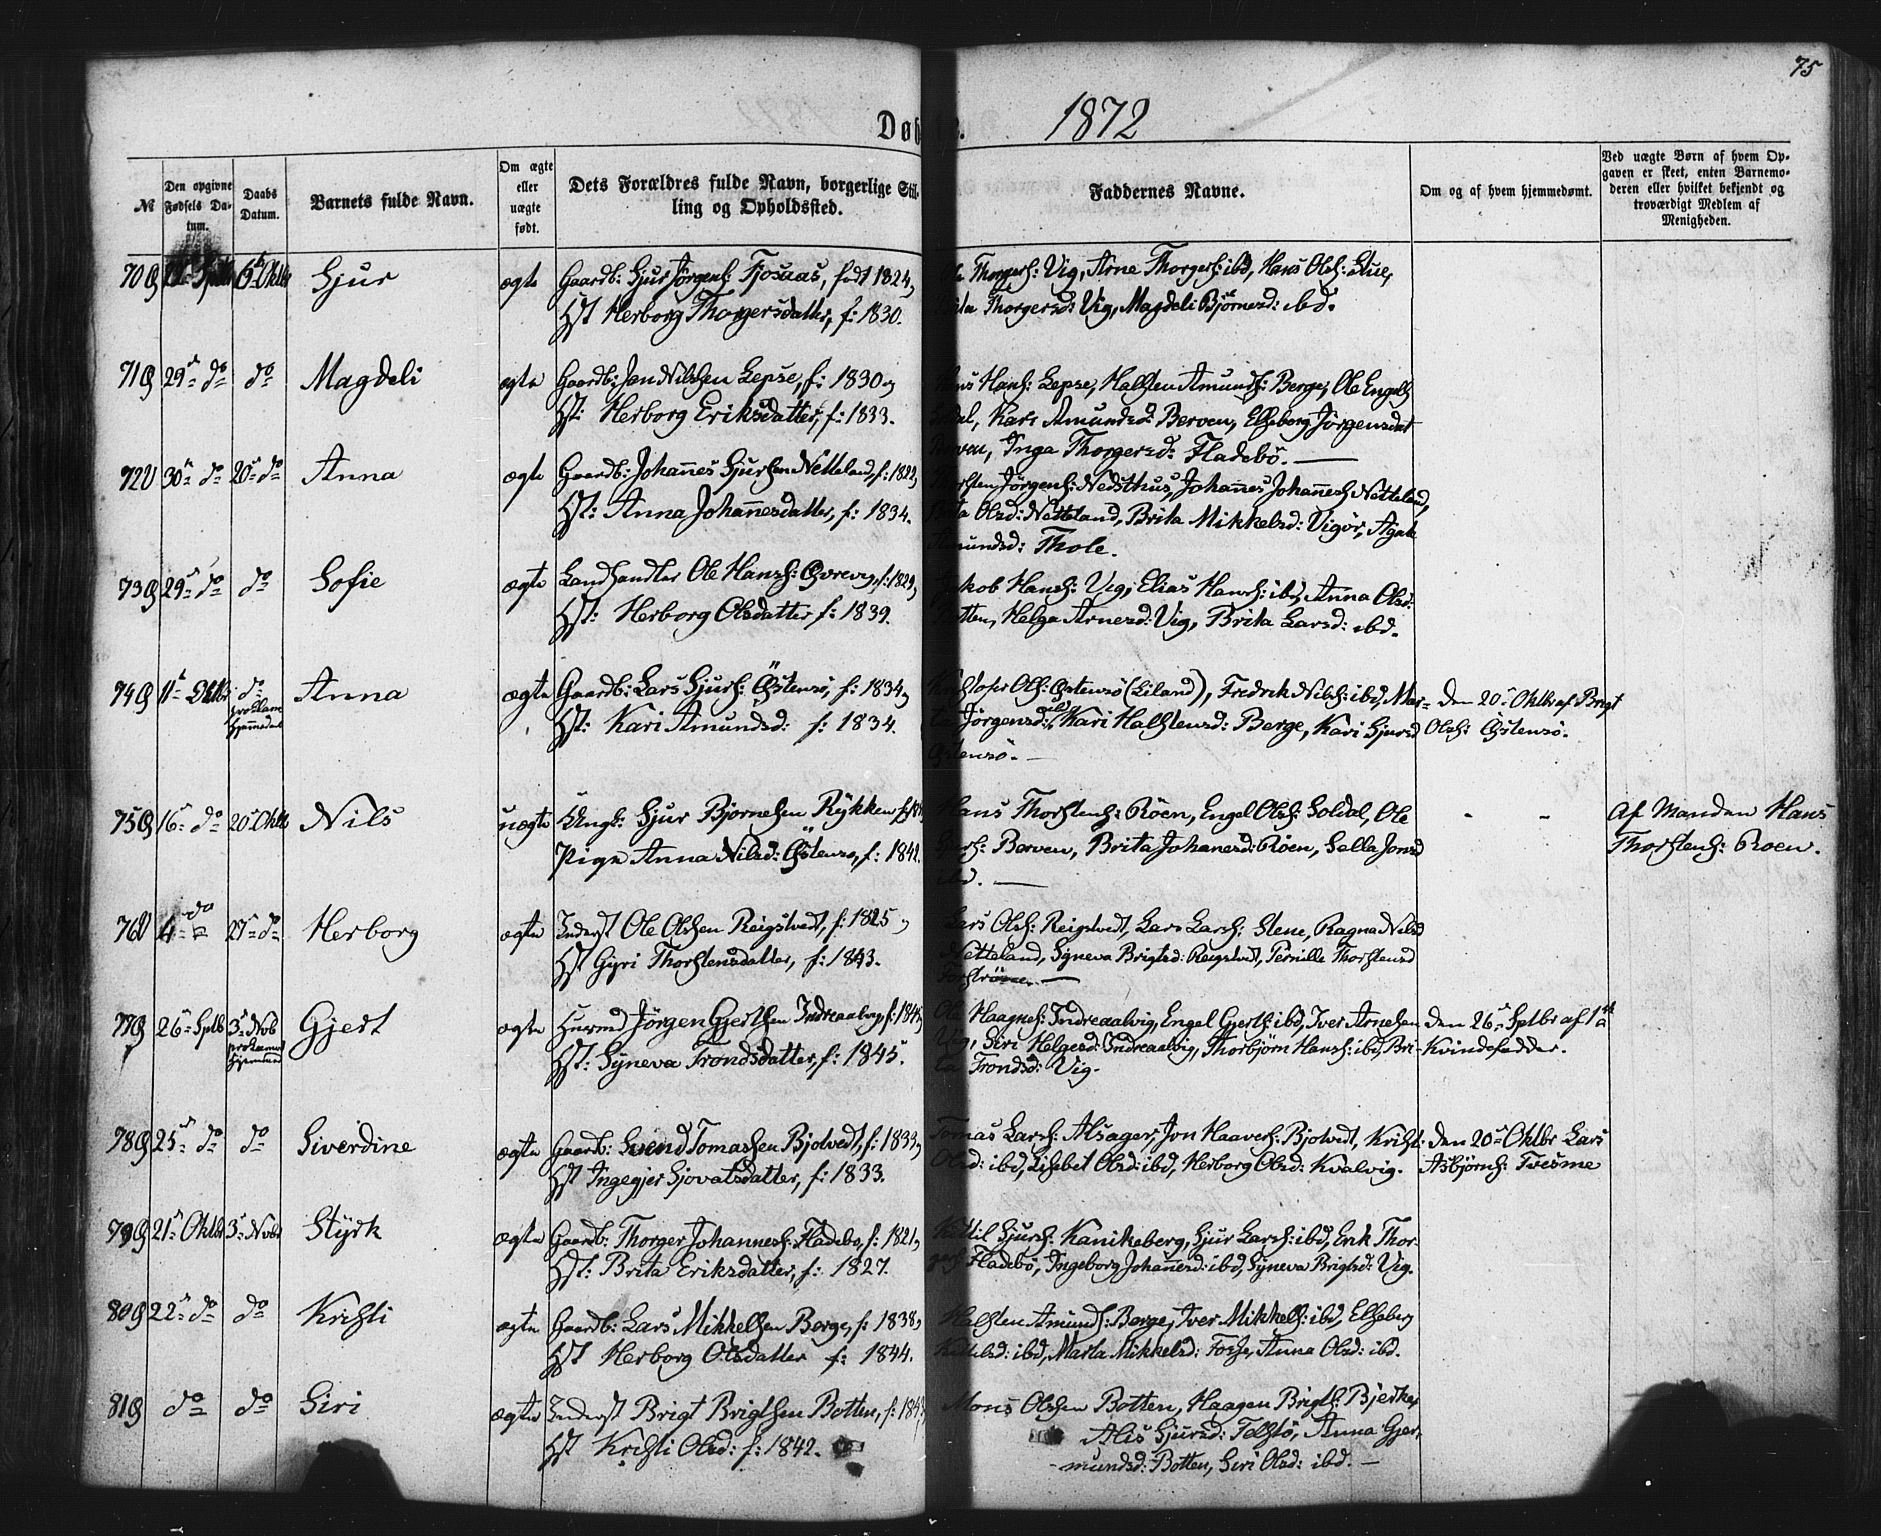 75
1872
№
Den opgivne Fødsels Datum.
Daabs Datum.
Barnets fulde Navn.
Om ægte eller uægte født.
Dets Forældres fulde Navn, borgerlige Stilling og Opholdssted.
Faddernes Navne.
Om og af hvem hjemmedømt.
Ved uægte Børn af hvem Opgaven er skeet, enten Barnemoderen eller hvilket bekjendt og troværdigt Medlem af Menigheden.
70 Sjur ægte Gaardb: Sjur Jörgens: Fjosaas, født 1824, Thorgers: Vig, Arne Thorgers: ibd, Hans Ols: Stue,
Hst Herborg Thorgersdatter, f: 1830. Thorgersd: Vig, Magdeli Björnesd: ibd.
71 29 do do Magdeli ægte Gaardb: Jon Nilssen Lepse, f: 1830 og Hans: Lepse, Halsten Amunds: Berge, Ole Engels
Hst: Herborg Eriksdatter, f: 1833. Kari Amundsd: Berven, Elseborg Jörgensdat
Inga Thorgersd: Fladebö.
72 30 do 20 do Anna ægte Gaardb: Johannes Sjursen Netteland, f: 1822, Jörgens: Nedsthus, Johannes Johanness Netteland,
Hst: Anna Johannesdatter, f: 1834. Olsd: Netteland, Brita Mikkelsd: Vigör, Agate
Amundsd: Thole.
73 29 do do Sofie ægte Landhandler Ole Hans: f: 1829, Hans: Vig, Elias Hans: ibd, Anna Olsd:
Hst: Herborg Olsdatter f: 1839. Helga Arnesd: Vig, Brita Larsd: ibd.
74 11 do Anna ægte Gaardb: Lars Sjurs: Östensö, f: 1834, Ols: Östensö (Liland), Fredrik Nils: ibd, Mar- den 20 Oktbr af Brigt
Hst: Kari Amundsd: f: 1834. Jörgensd: ibd, Kari Halstensd: Berge, Kari Sjursd Ols: Östensö.
75 16 do 20 Oktbr Nils uægte Ungk: Sjur Bjornesen Rykken Hans Thorstens: Röen, Engel Ols: Soldal, Ole - - Af Manden Hans
Pige Anna Nilsd: Östensö, f: 1842. Berven, Brita Johanesd: Röen, Sella Jonsd Thorstens: Roen.
ibd.
76 4 do 27 do Herborg ægte Inderst Ole Olssen Reigstvedt, f: 1825 Lars Ols: Reigstvedt, Lars Lars: Stene, Ragna Nilsd
Hst Gyri Thorstensdatter, f: 1843. Netteland, Syneva Brigtsd: Reigstvedt, Pernille Thorstensd
77 26 Sptb 3 Nov Gjert ægte Jörgen Gjertsen Indreaalvig, Haagnes: Indreaalvig, Engel Gjerts: ibd, Iver Arnesen den 26 Sptbr af 1ste
Hst: Syneva Trondsdatter, f: 1845. Siri Helgesd: Indreaalvig, Thorbjörn Hans: ibd, Bri- Kvindefadder.
ta Trondsd: Vig.
78 25 do do Siverdine ægte Gaardb: Svend Tomassen Bjotvedt, f: 1833, Tomas Lars: Alsager, Jon Haaves: Bjotvedt, Kristi den 20 Oktbr Lars
Hst Ingegjer Sjovatsdatter, f: 1833. Olsd: ibd, Lisebet Olsd: ibd, Herborg Olsd: Kvalvig. Asbjörns: Tvesme
79 21 Oktbr 3 Novbr Styrk ægte Gaardb: Thorger Johannes: Fladebo, f: 1821, Kittil Sjurs: Kanikeberg, Sjur Lars: ibd, Erik Thor-
Hst: Brita Eriksdatter, f: 1827. Fladebö, Ingeborg Johanesd: ibd, Syneva Brigtsd: Vig.
80 22 do do Kristi ægte Gaardb: Lars Mikkelsen Berge, f: 1838, Halsten Amunds: Berge, Iver Mikkels: ibd, Elseborg
Hst Herborg Olsdatter f: 1844. Kittilsd: ibd, Marta Mikkelsd: Fosse, Anna Olsd: ibd.
81 do do Siri ægte Inderst Brigt Brigtsen Botten, Mons Olssen Botten, Haagen Brigts: Bjerke,
Hst Kristi Olsd: f: 1842. Alis Sjursd: Telstö, Anna Gjer-
mundsd: Botten, Siri Olsd: ibd.